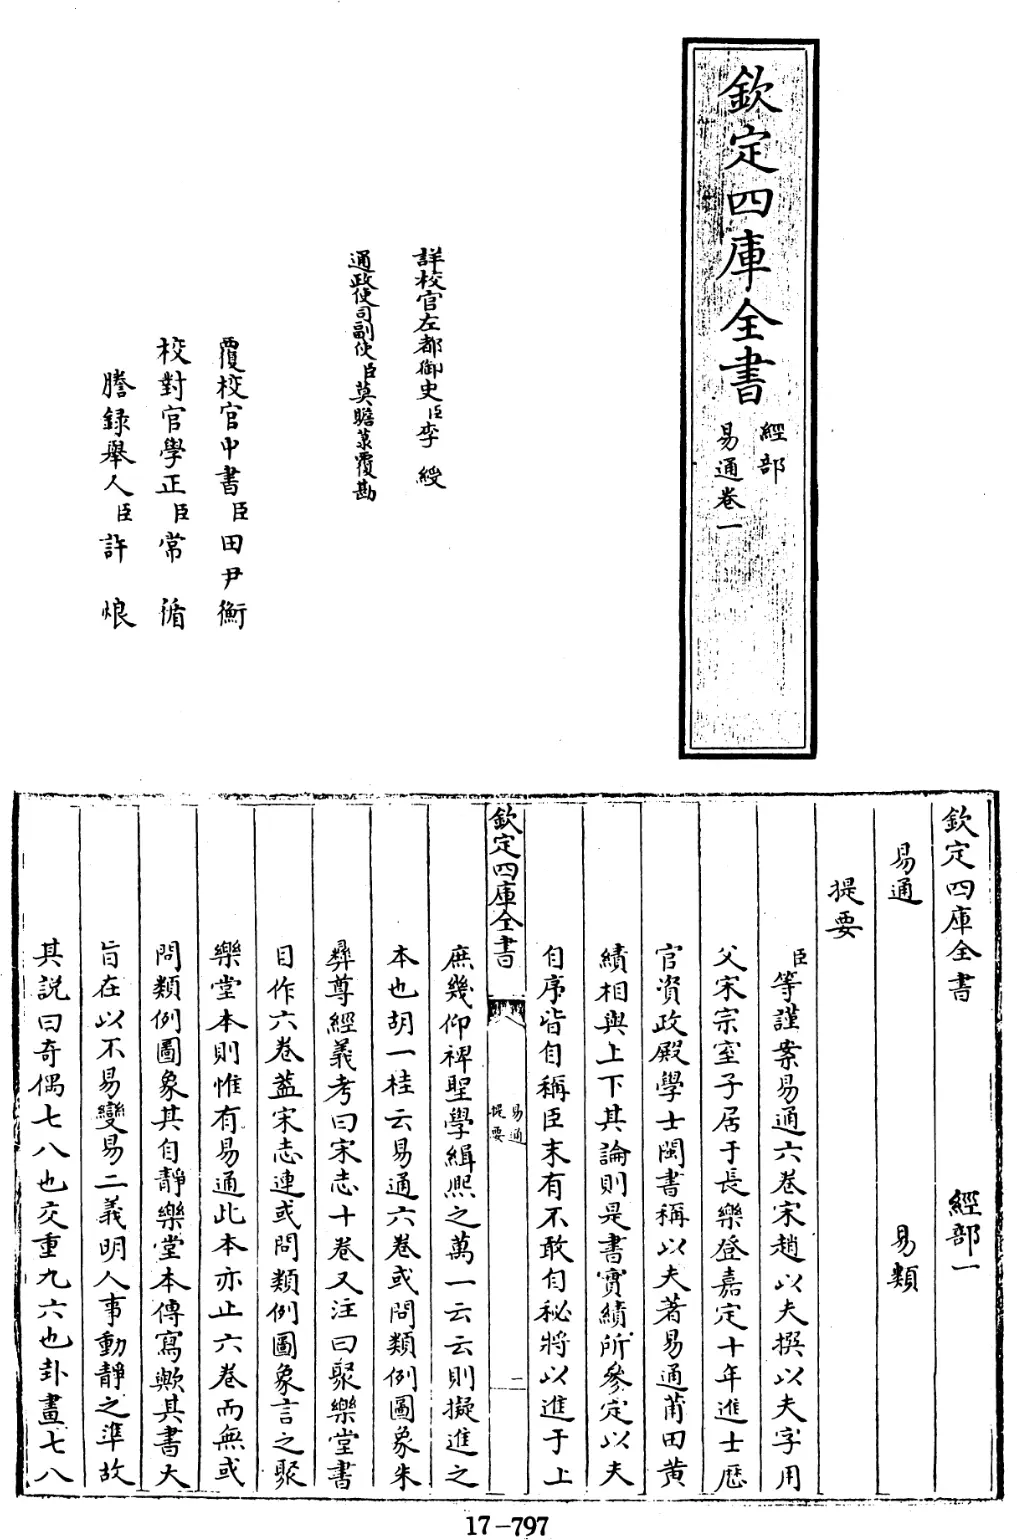 欽定四庫全書
經部
易通卷一
詳校官左都御史臣李 綬
通政使司副使臣莫瞻菉覆勘
覆校官中書臣田尹衡
校對官學正臣常 循
謄録舉人臣許 烺
欽定四庫全書 經部一
易通 易類
提要
臣等謹案易通六卷宋趙以夫撰以夫字用
父宋宗室子居于長樂登嘉定十年進士歴
官資政殿學士閩書稱以夫著易通莆田黄
績相與上下其論則是書實績所參定以夫
自序皆自稱臣末有不敢自秘將以進于上
欽定四庫全書
易通
提要
二
庶幾仰裨聖學緝熙之萬一云云則擬進之
本也胡一桂云易通六卷或問類例圖象朱
彝尊經義考曰宋志十卷又注曰聚樂堂書
目作六卷葢宋志連或問類例圖象言之聚
樂堂本則惟有易通此本亦止六卷而無或
問類例圖象其自靜樂堂本傳寫歟其書大
旨在以不易變易二義明人事動靜之準故
其説曰奇偶七八也交重九六也卦畫七八
17-797